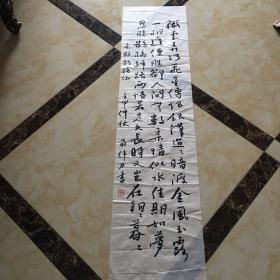 纖雲弄巧飛星傳恨銀漢迢〻暗渡金風玉露
一相逢便勝却人間無數柔情似水佳期如夢
忍顧鵲橋歸路兩情若是久長時又豈在朝〻暮〻
秦觀鵲橋仙 仲秋 書